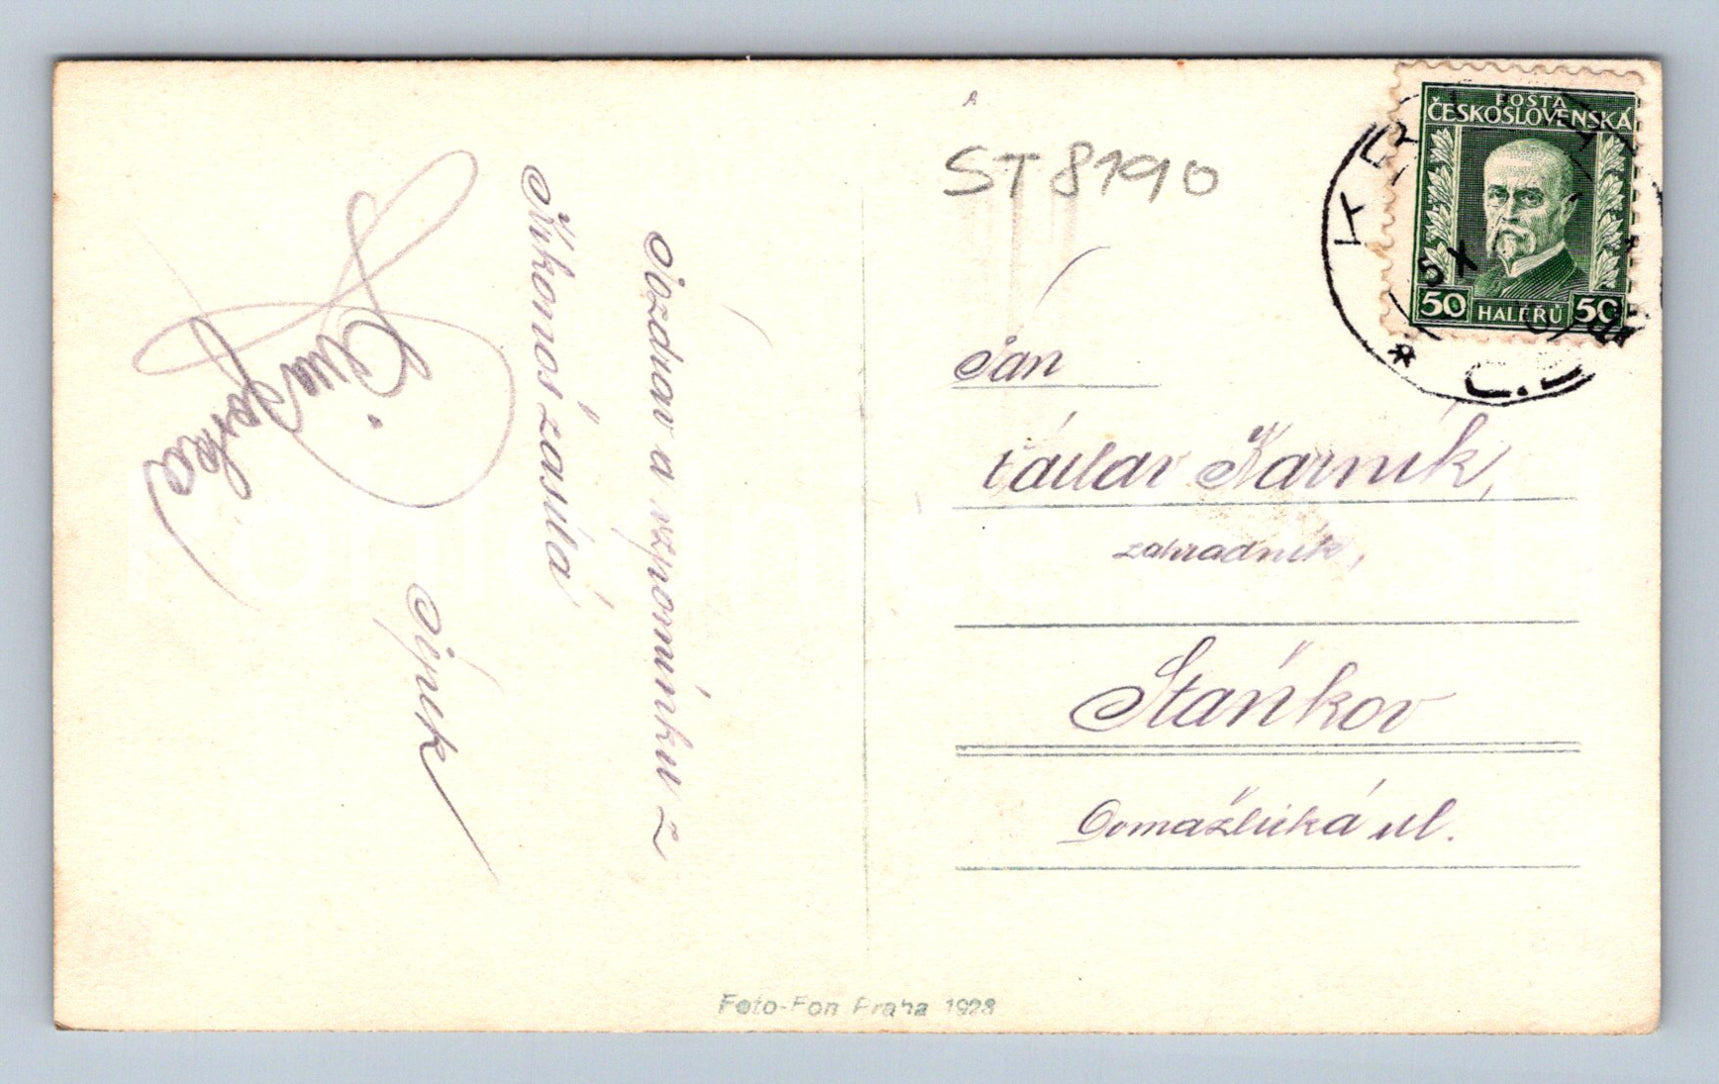 Pozdrav a vzpomínku z
Krkonoš zasílá
Sýpek
A
ST 8190
POŠTA
ČESKOSLOVENSKÁ
50 HALÉŘŮ 50
5 X
Pan
Václav Karník,
zahradník,
Staňkov
Domažlická ul.
Foto-Fon Praha 1928